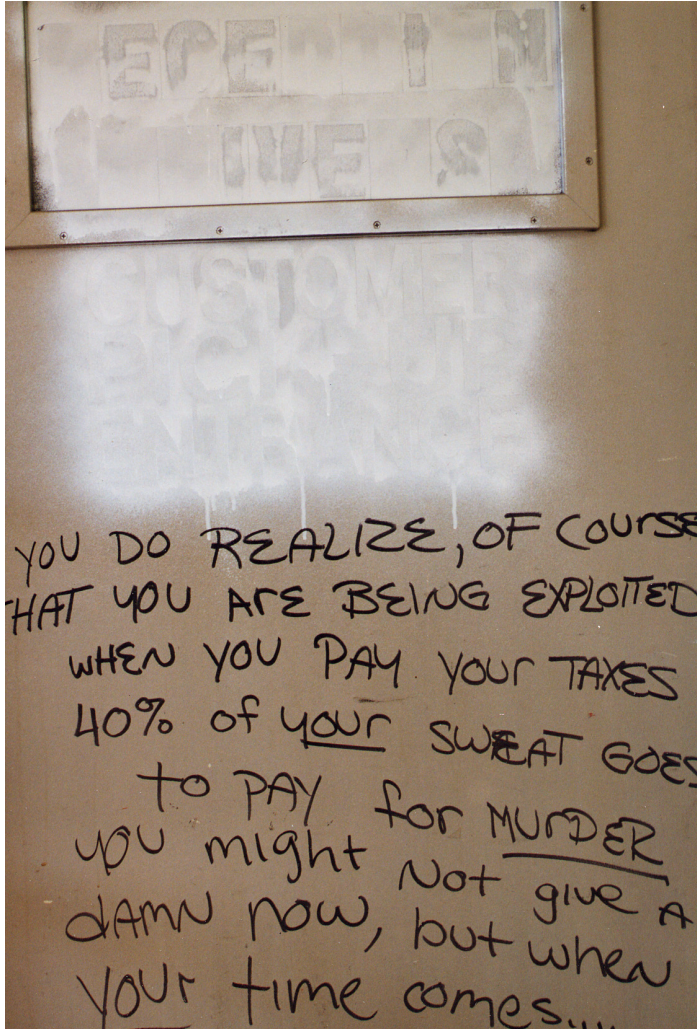 CUSTOMER
ENTRANCE
YOU DO REALIZE, OF COURSE
THAT YOU ARE BEING EXPLOITED
WHEN YOU PAY YOUR TAXES
40% of your SWEAT GOES
to PAY for MURDER
you might Not give A
dAMN now, but when
YOUR time comes....